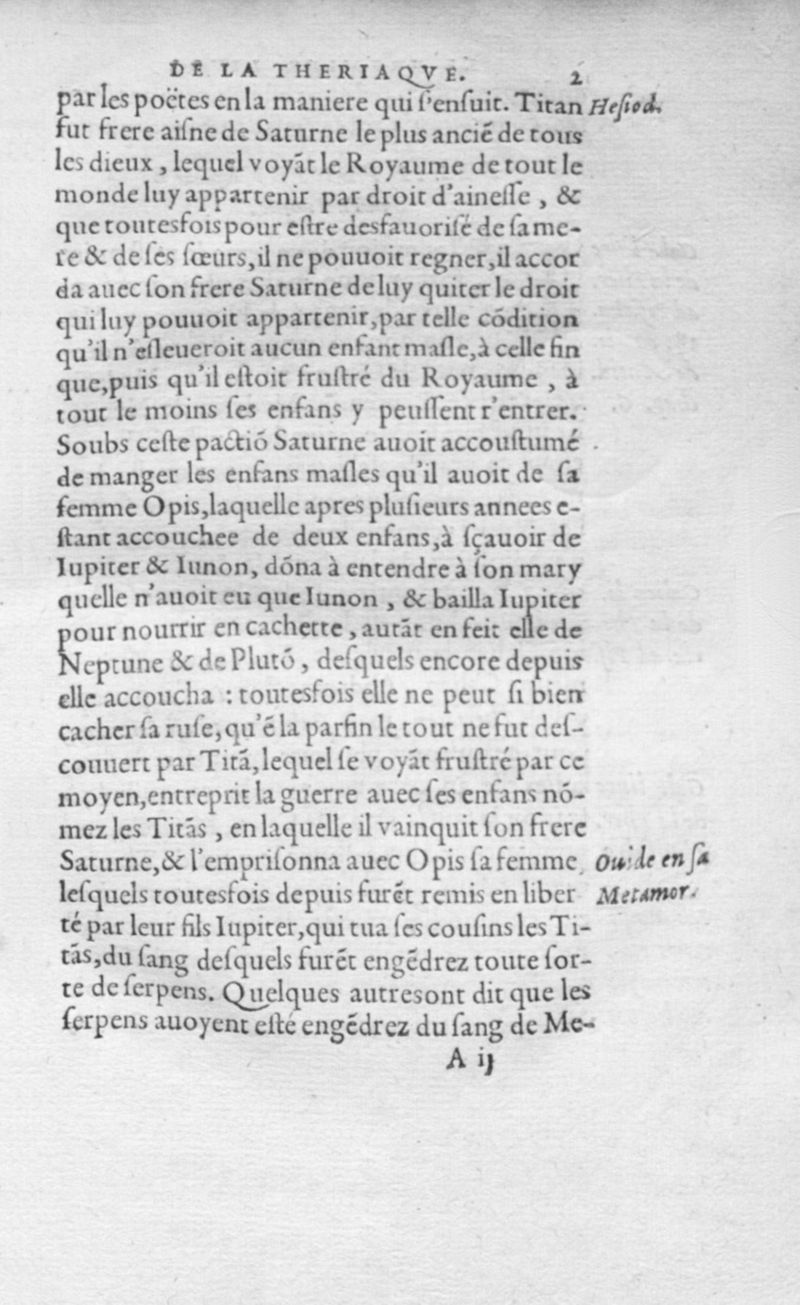 DE LA THERIAQVE. 2
par les poëtes en la maniere qui ſ'enſuit. Titan Heſiod.
fut frere aiſne de Saturne le plus anciẽ de tous
les dieux, lequel voyãt le Royaume de tout le
monde luy appartenir par droit d'aineſſe, &
que toutesfois pour eſtre desfauoriſé de ſa me-
re & de ſes ſœurs, il ne pouuoit regner, il accor
da auec ſon frere Saturne de luy quiter le droit
qui luy pouuoit appartenir, par telle cõdition
qu'il n'eſleueroit aucun enfant maſle, à celle fin
que, puis qu'il eſtoit fruſtré du Royaume, à
tout le moins ſes enfans y peuſſent r'entrer.
Soubs ceſte pactiõ Saturne auoit accouſtumé
de manger les enfans maſles qu'il auoit de ſa
femme Opis, laquelle apres pluſieurs annees e-
ſtant accouchee de deux enfans, à ſçauoir de
Iupiter & Iunon, dõna à entendre à ſon mary
quelle n'auoit eu que Iunon, & bailla Iupiter
pour nourrir en cachette, autãt en feit elle de
Neptune & de Plutõ, deſquels encore depuis
elle accoucha : toutesfois elle ne peut ſi bien
cacher ſa ruſe, qu'ẽ la parfin le tout ne fut deſ-
couuert par Titã, lequel ſe voyãt fruſtré par ce
moyen, entreprit la guerre auec ſes enfans nõ-
mez les Titãs, en laquelle il vainquit ſon frere
Saturne, & l'empriſonna auec Opis ſa femme, Ouide en ſa
leſquels toutesfois depuis furẽt remis en liber Metamor.
té par leur fils Iupiter, qui tua ſes couſins les Ti-
tãs, du ſang deſquels furẽt engẽdrez toute ſor-
te de ſerpens. Quelques autres ont dit que les
ſerpens auoyent eſté engẽdrez du ſang de Me-
A ij